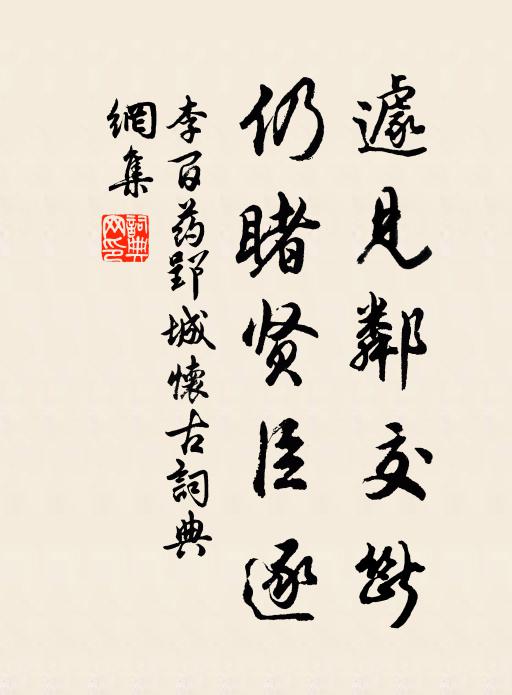 遽見鄰交斷
仍睹贤臣逐
李百药郢城懷古詞典
網集
詞典
网印